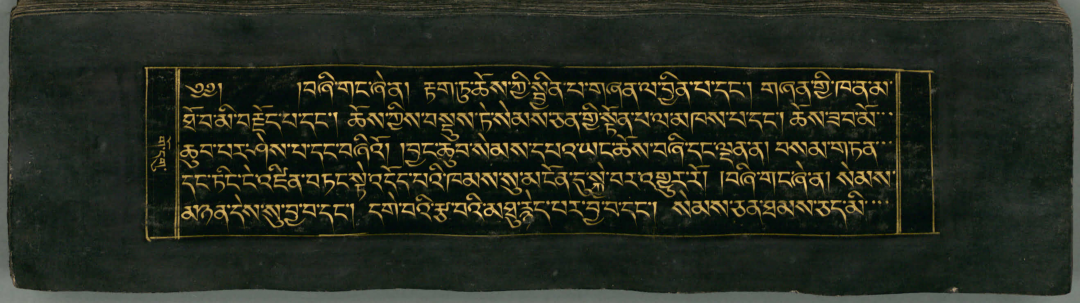 ༄༅། །བཞི་གང་ཞེ་ན། རྟག་ཏུ་ཆོས་ཀྱི་སྦྱིན་པ་གཞན་ལ་བྱིན་པ་དང་། གཞན་གྱི་ཁ་ན་མ་
ཐོ་བ་མི་བརྗོད་པ་དང་། ཆོས་ཀྱིས་བསྡུས་ཏེ་སེམས་ཅན་གྱི་སྟོན་པ་ལ་མཁས་པ་དང་། ཆོས་ཟབ་མོ་
ཆུབ་པར་ཤེས་པ་དང་བཞིའོ། །བྱང་ཆུབ་སེམས་དཔའ་ཡང་ཆོས་བཞི་དང་ལྡན་ན། བསམ་གཏན་
དང་ཏིང་ངེ་འཛིན་བཏང་སྟེ་འདོད་པའི་ཁམས་སུ་མངོན་དུ་སྐྱེ་བར་འགྱུར་རོ། །བཞི་གང་ཞེ་ན། སེམས་
མཉན་དེས་སུ་བྱ་བ་དང་། དགེ་བའི་རྩ་བའི་མཐུ་རྙེད་པར་བྱ་བ་དང་། སེམས་ཅན་ཐམས་ཅད་མི་